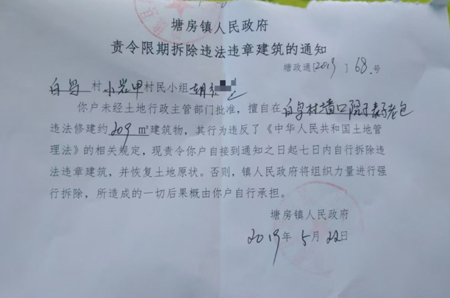 塘房镇人民政府
责令限期拆除违法违章建筑的通知
塘政通[2019]68号
白乌村小岩甲村民小组
你户未经土地行政主管部门批准，擅自在白乌村
违法修建约309㎡建筑物，其行为违反了《中华人民共和国土地管
理法》的相关规定，现责令你户自接到通知之日起七日内自行拆除违
法违章建筑，并恢复土地原状。否则，镇人民政府将组织力量进行强
行拆除，所造成的一切后果概由你户自行承担。
塘房镇人民政府
2019年5月22日